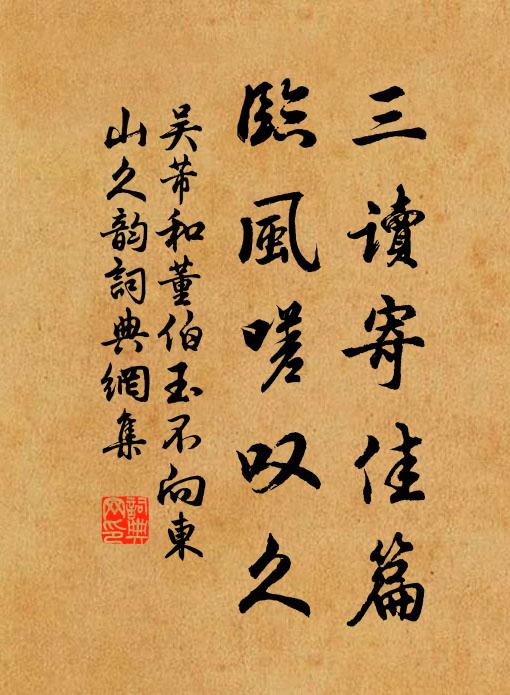 三读寄佳篇
臨風嗟叹久
吴芾和董伯玉不向東
山久韵詞典網集
詞典
网印